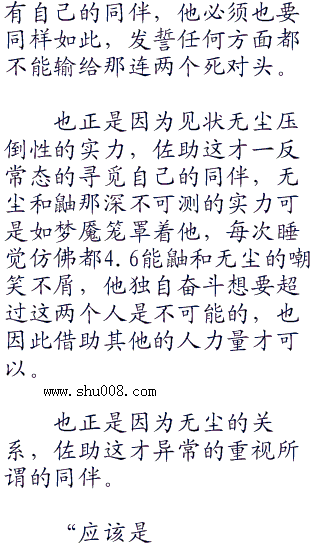 有自己的同伴，他必须也要
同样如此，发誓任何方面都
不能输给那连两个死对头。
也正是因为见状无尘压
倒性的实力，佐助这才一反
常态的寻觅自己的同伴，无
尘和鼬那深不可测的实力可
是如梦魇笼罩着他，每次睡
觉仿佛都4.6能鼬和无尘的嘲
笑不屑，他独自奋斗想要超
过这两个人是不可能的，也
因此借助其他的人力量才可
以。
www.shu008.com
也正是因为无尘的关
系，佐助这才异常的重视所
谓的同伴。
“应该是